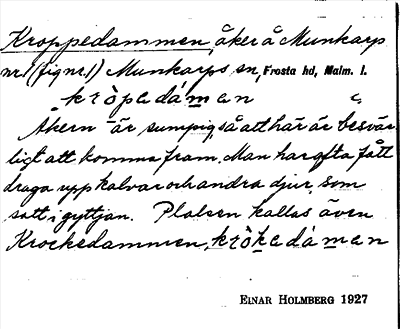 Kroppedammen, åker å Munkarp
nr 1 (fig nr 1) Munkarps sn, Frosta hd, Malm. l.
kròpadáman
Åkern är sumpig, så att här är besvär-
ligt att komma fram. Man har ofta fått
draga upp kalvar och andra djur, som
satt i gyttjan. Platsen kallas även
Krockedammen, kròkadáman
EINAR HOLMBERG 1927